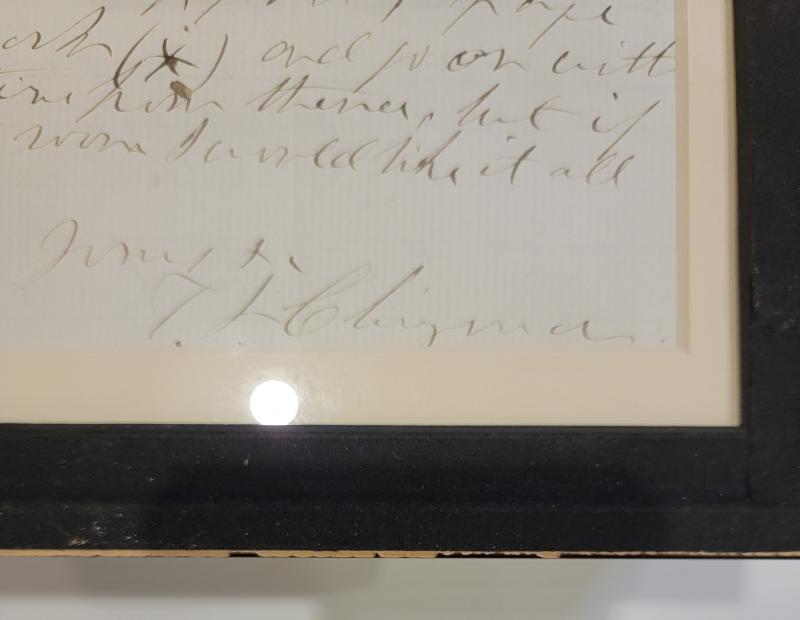 (x) and go on with
from thence, but if
room I would like it all
Yours &c
T. L. Clingman